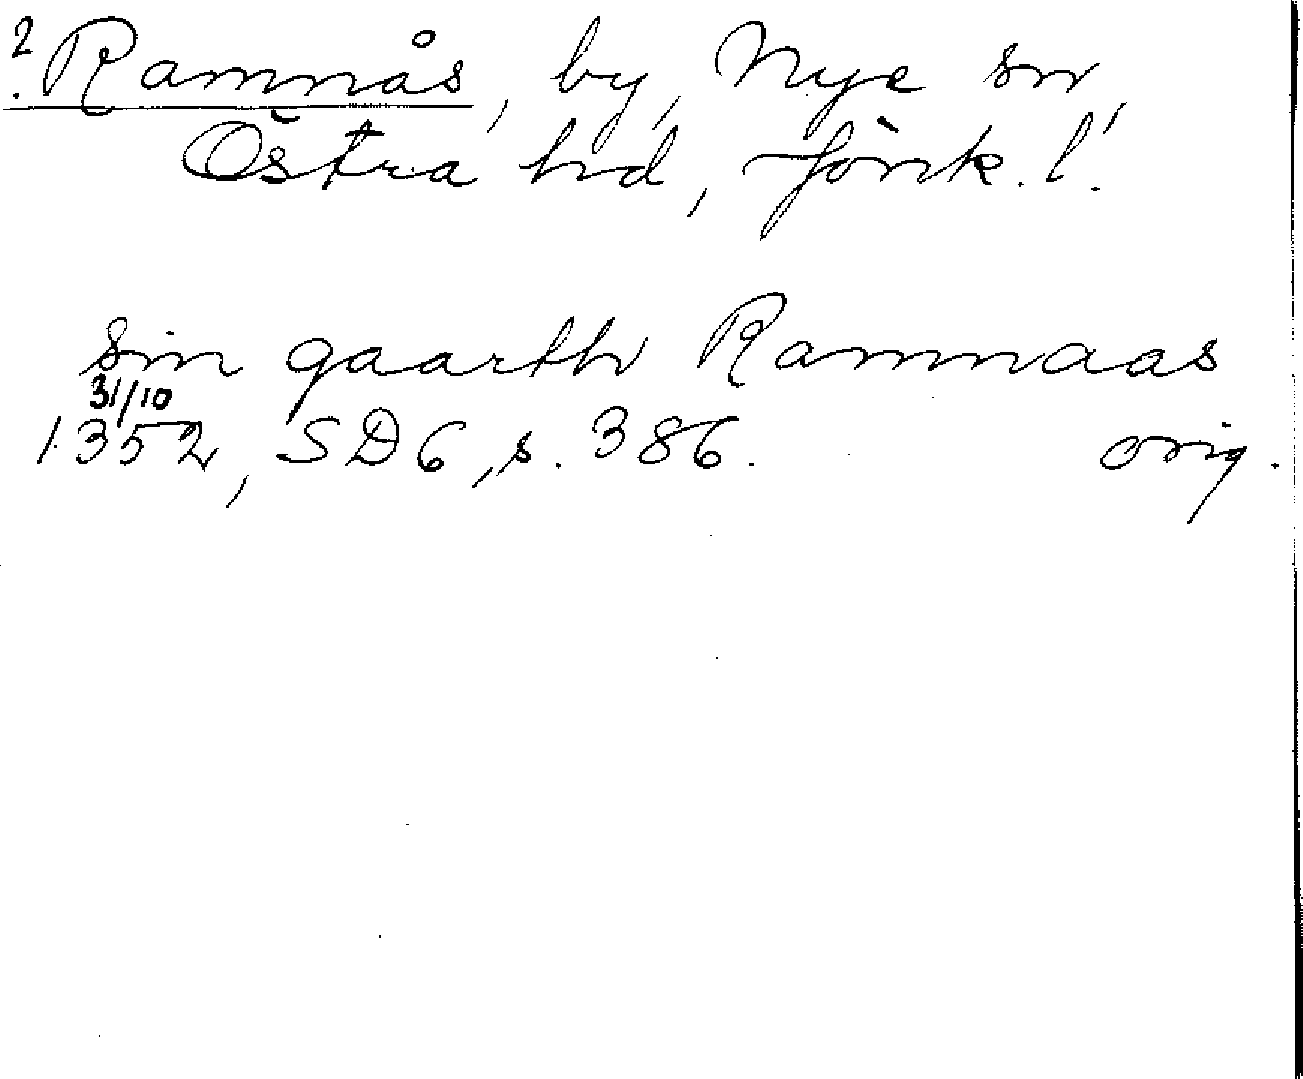 ? Ramnås, by, Nye sn,
Östra hd, Jönk. l.
sin gaarth Ramnaas
31/10
1352, SD 6, s. 386. orig.